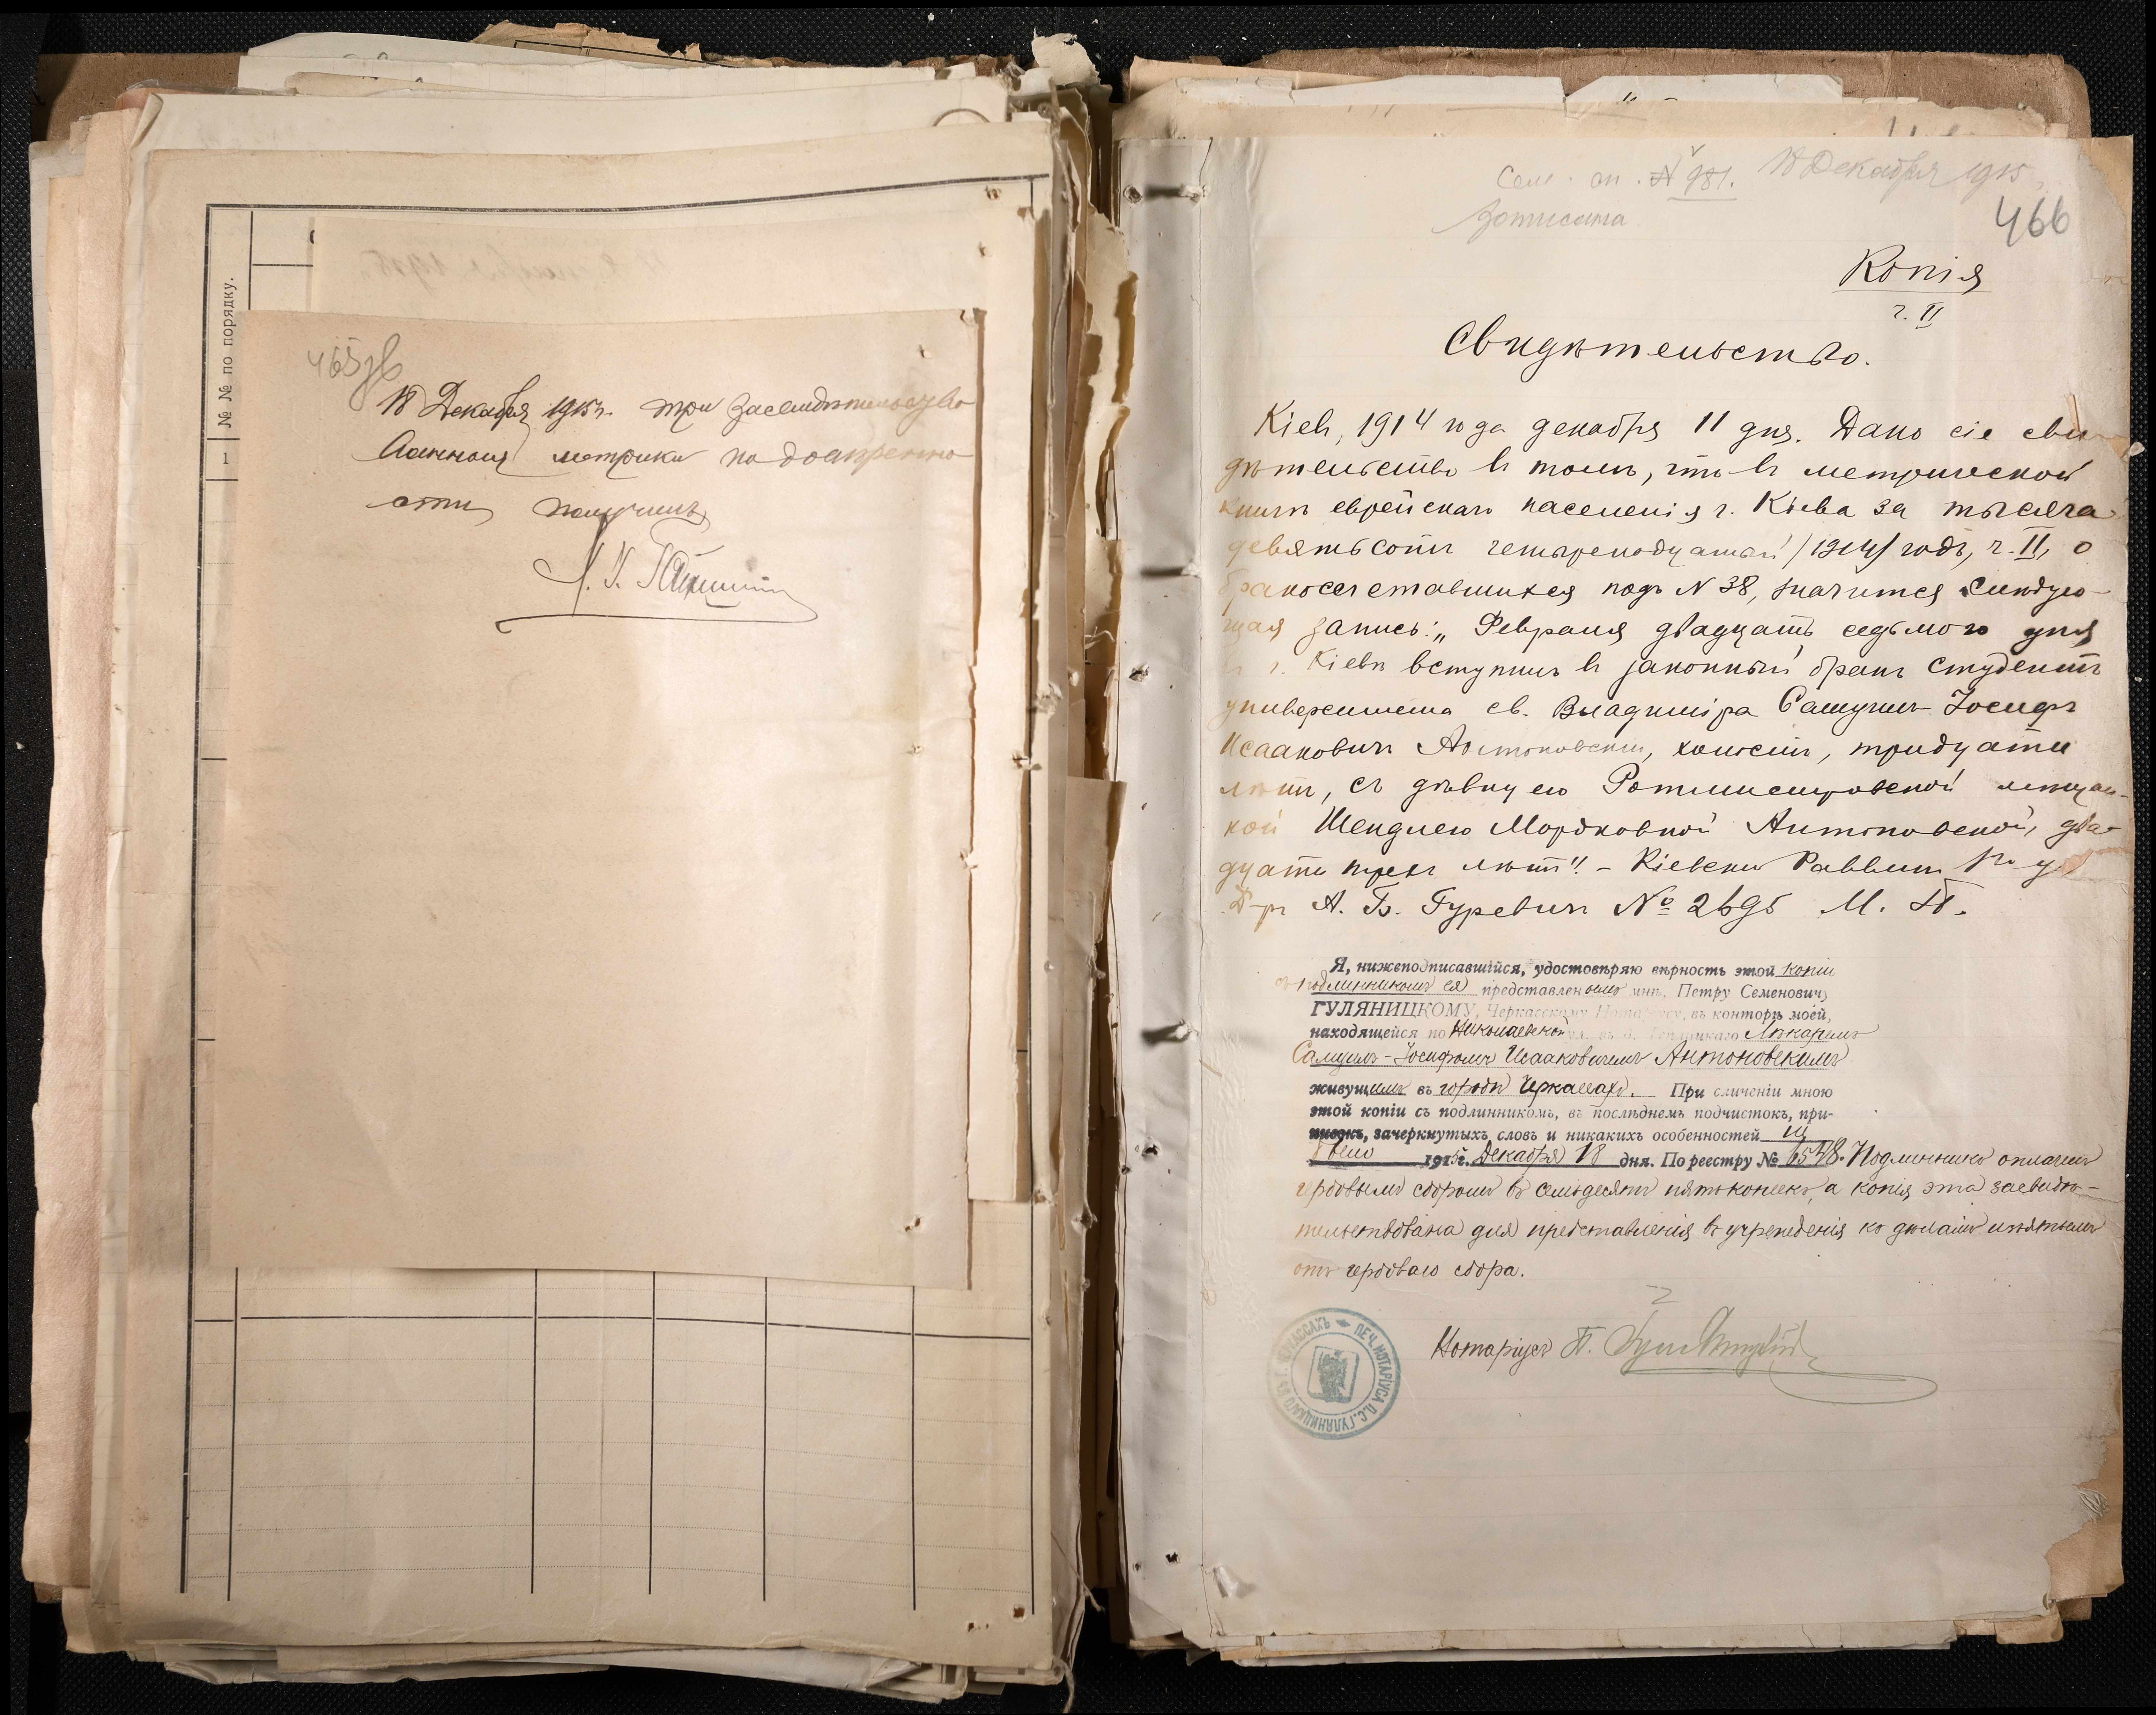 № № по порядку.
1
465 об
18 Декабря 1915 г. при засвидѣтельство
данная метрика по довѣренно
сти получилъ
Сем. сп. № 981. 18 Декабря 1915
466
Копія
г. II
Свидѣтельство.
Кіевъ, 1914 года декабря 11 дня. Дано сіе сви
дѣтельство въ томъ, что въ метрической
книгѣ еврейскаго населенія г. Кіева за тысяча
девятьсотъ четырнадцатый /1914/ годъ, ч. II, о
бракосочетавшихся подъ N 38, значится слѣдую-
щая запись: „Февраля двадцать седьмого дня
въ г. Кіевѣ вступилъ въ законный бракъ студентъ
университета св. Владиміра Самуилъ-Іосифъ
Исааковичъ Антоновскій, холостъ, тридцати
лѣтъ, съ дѣвицею Ротмистровской мѣщан-
кой Шендлею Мордковной Антоновской, два-
дцати трехъ лѣтъ". - Кіевскій Раввинъ
Д-ръ А. Б. Гуревичъ № 2695 М. П.
Я, нижеподписавшійся, удостовѣряю вѣрность этой копіи
съ подлинникомъ ея представленнымъ мнѣ, Петру Семеновичу
ГУЛЯНИЦКОМУ, Черкасскому Нотаріусу, въ конторѣ моей,
находящейся по Николаевской ул. въ д. Лѣкаремъ
Самуилъ-Іосифомъ Исааковичемъ Антоновскимъ
живущимъ въ городѣ Черкассахъ. При сличеніи мною
этой копіи съ подлинникомъ, въ послѣднемъ подчистокъ, при-
писокъ, зачеркнутыхъ словъ и никакихъ особенностей не
было 1915 г. Декабря 18 дня. По реестру № 6548. Подлинникъ оплаченъ
гербовымъ сборомъ въ семьдесятъ пять копѣекъ, а копія эта засвидѣ-
тельствована для представленія въ учрежденія по дѣламъ изъятымъ
отъ гербоваго сбора.
Нотаріусъ П. Гуляницкій
ПЕЧ. НОТАРІУСА П. С. ГУЛЯНИЦКАГО ВЪ Г. ЧЕРКАССАХЪ